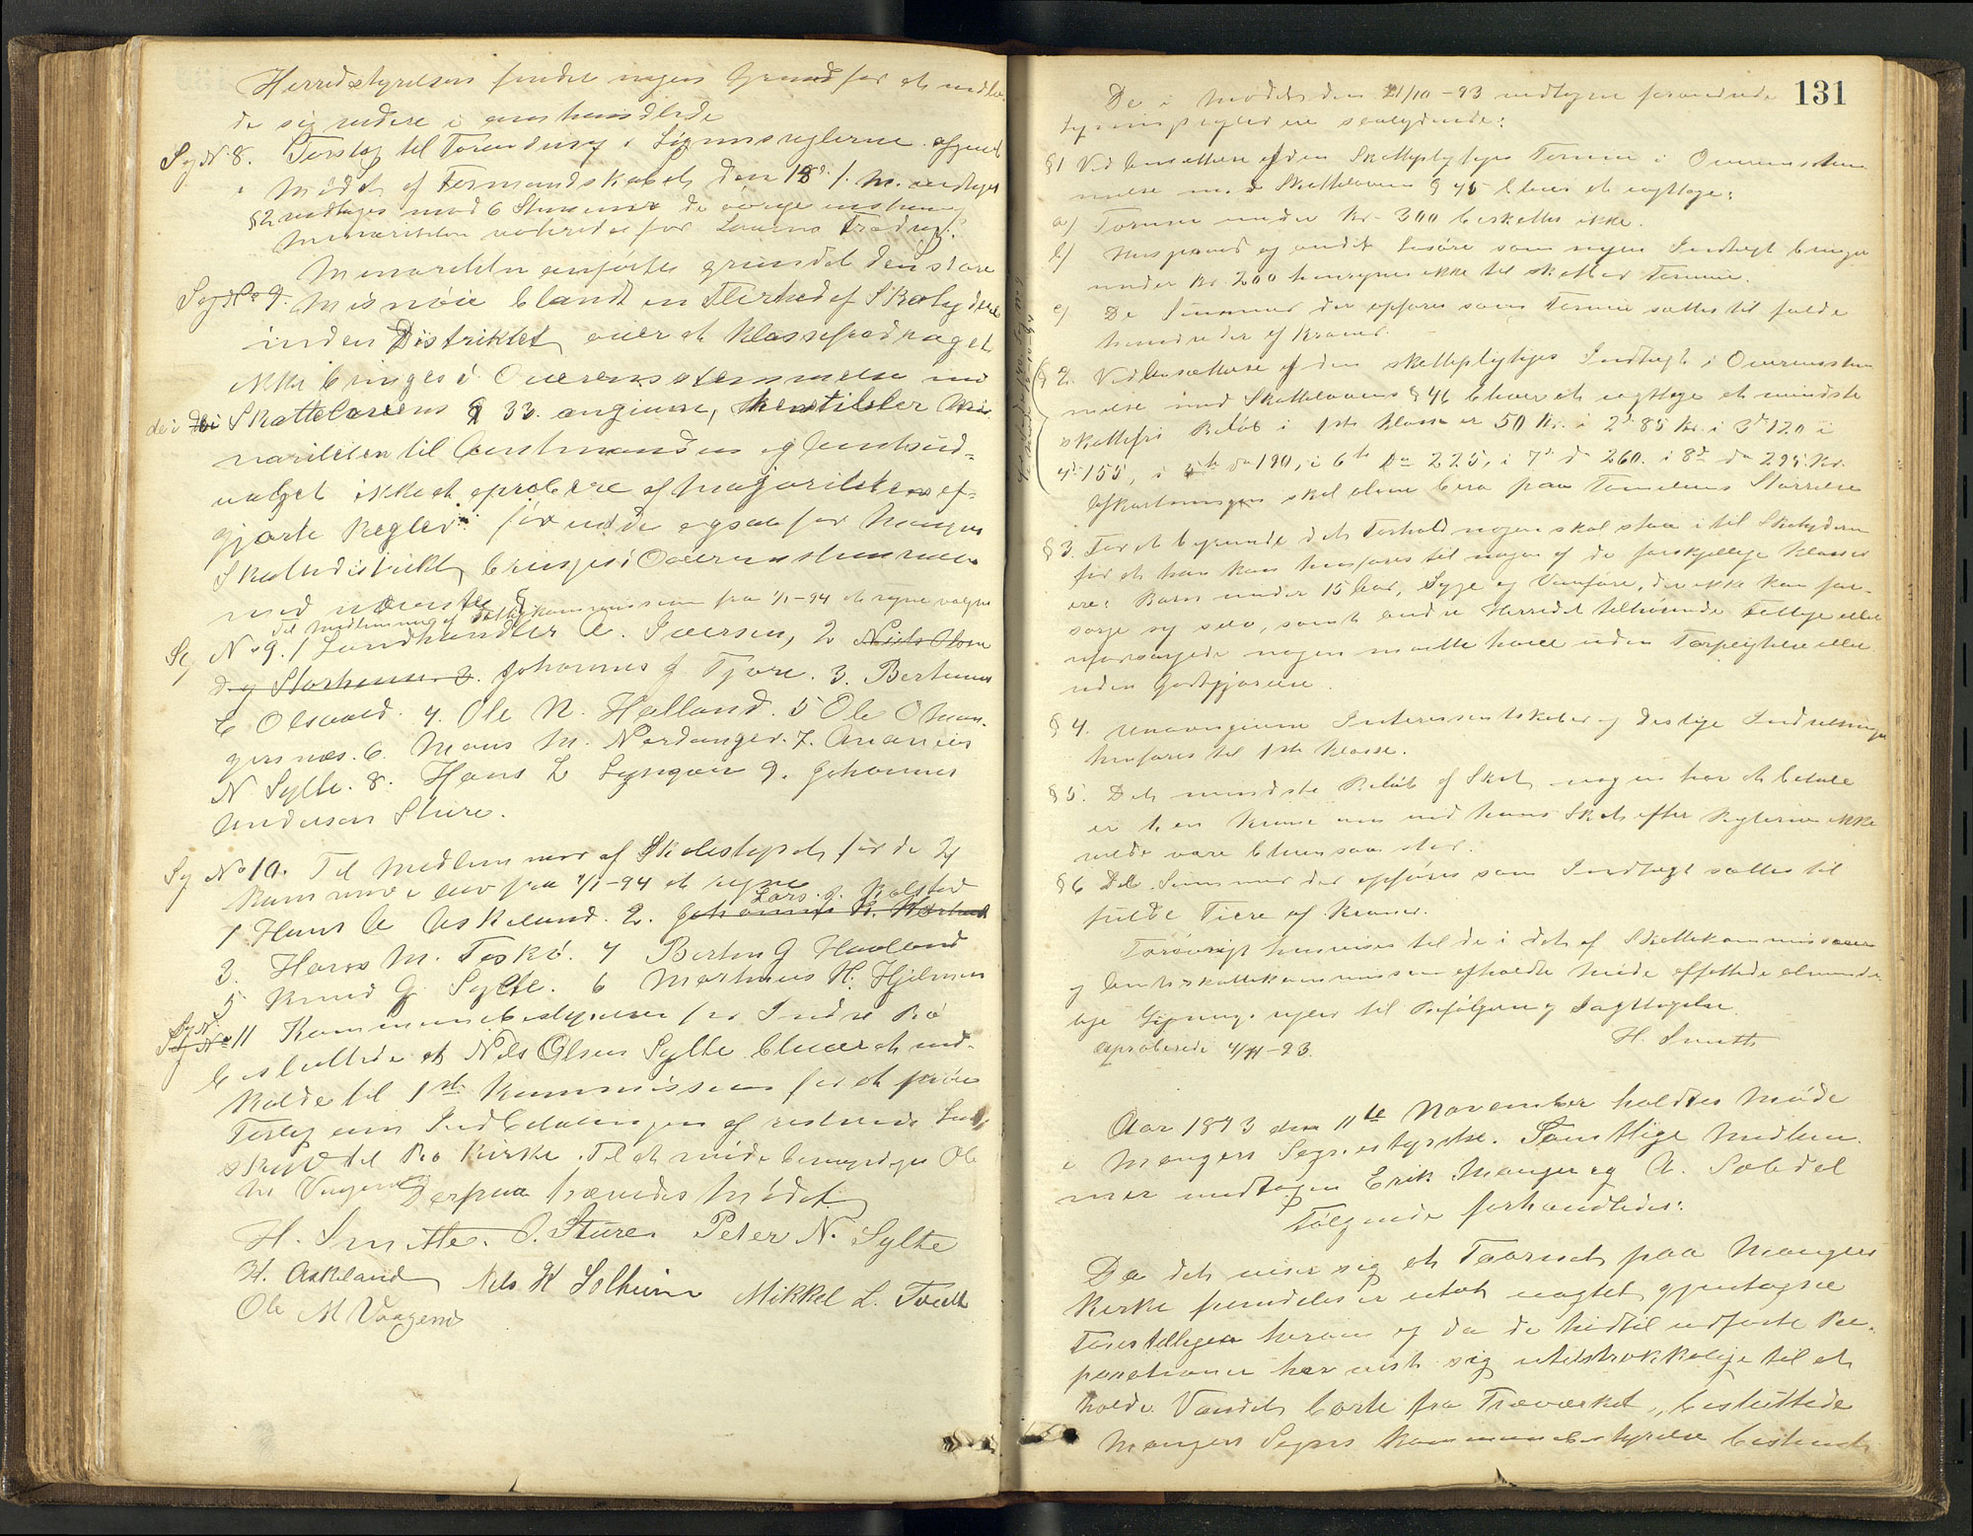 Herredstyrelsen fandt nogen Grund for at indla-
de sig videre i omhandlede
Sag No 8. Forslag til Forandring i Ligningsreglerne afgivet
i Mødet af Formandskabet den 18de f. M. vedtages
§ 2 vedtages med 6 Stemmer de øvrige enstemmig
Minoriteten voterede for Lovens Fradrag.
Minoriteten anførte grundet den store
Sag No 9. Misnøie blandt en Flerhed af Skatydere
inden Distriktet over at Klassefradraget
ikke bringes i Overensstemmelse med
de i Skattelovens § 33 angivne, henstiller Mi-
noriteten til Amtmanden og Amtsud-
valget ikke at aprobere af Majoriteten af-
gjorte Regler før end de ogsaa for Mangers
Skattedistrikt bringes i Overensstemmelse
med nævnte §
Til Medlemmer af Fattigkommissionen fra 1/1-94 at regne valgtes
Sag No 9. 1 Landhandler A. Iversen, 2 Niels Olsen
og Storheim 3. Johannes J Fjære. 3. Bertinus
E Olsvold. 4. Ole N. Halland. 5 Ole O Man-
gersnæs. 6. Mons M. Nordanger. 7. Ananias
N Sylte. 8. Hans L Lyngøen 9. Johannes
Andersen Sture.
Sag No 10. Til Medlemmer af Skolestyret for de 2
Kommuner fra 1/1-94 at regne
Lars J. Kolstad
1 Hans A Askeland. 2. Johannes K.
3. Hans M. Toskø. 4 Bertin J Haaland
5 Knud J Sylte. 6 Martinus H. Hjelmen
Sag No 11 Kommunebestyrelsen for Indre Bø
besluttede at Nils Olsen Sylte bliver at ind-
kalde til Kommissionen for at prøve
Forlig om Indbetalingen af restende
til Bø Kirke. Til at møde bemyndiges Ole
M Vaagenes Derpaa hævedes Mødet
H. Smith. J. Sture. Peter N. Sylte
H. Askeland Nils K Solheim Mikkel L. Tveit
Ole M Vaagenes
131
De i Mødet den 21/10-93 vedtagne forandrede
Ligningsregler ere saalydende:
§ 1 Ved Ansættelse af den Skattepligtiges Formue i Overensstem-
melse med Skattelovens § 45 bliver at iagttage:
a) Formue under Kr. 300 beskattes ikke.
b) Husgeraad og andet Løsøre som ingen Indtægt bringer
under Kr. 200 henregnes ikke til skatbar Formue.
c) De Summer der opføres som Formue sættes til fulde
hundreder af Kroner.
§ 2. Ved Ansættelse af den skattepligtiges Indtægt i Overensstem-
melse med Skattelovens § 46 bliver at iagttage at mindste
skattefri Beløb i 1ste Klasse er 50 Kr. i 2d 85 Kr. i 3d 120 i
4d 155, i 5te do 190, i 6te do 225, i 7d do 260. i 8d do 295 Kr.
Afkortningen skal alene bero paa Familiens Størrelse
§ 3. For at begrunde det Forhold nogen skal staa i til Skatyderen
for at han kan henføres til nogen af de forskjellige Klasser
ere: Børn under 15 Aar, Syge og Vanføre, der ikke kan for-
sørge sig selv, samt andre Herredet tilhørende Fattige eller
uforsørgede nogen maatte have uden Forpligtelse eller
uden Godtgjørelse.
§ 4. Interessentskaber og deslige Indretninger
henføres til 1ste Klasse.
§ 5. Det mindste Beløb af Skat nogen har at betale
er 1 en Krone om end hans Skat efter Reglerne ikke
vilde være bleven saa stor.
§ 6 De Summer der opføres som Indtægt sættes til
fulde Tiere af Kroner.
Forøvrigt henvises til de i det af Skattekommissionen
og Amtsskattekommissionen afholdte Møde affattede alminde-
lige Lignings regler til Befølgelse og Iagttagelse.
H. Smith
Aproberede 4/11-93.
Aar 1893 den 11te November holdtes Møde
i Mangers Sognestyrelse. Samtlige Medlem-
mer undtagen Erik Manger og A. Solidal
Følgende forhandledes:
Da det viser sig at Taarnet paa Mangers
Kirke fremdeles er utæt uagtet gjentagne
Forestillinger herom og da de hidtil udførte Re-
parationer har vist sig utilstrækkelige til at
holde Vandet borte fra Træværket, besluttede
Mangers Sogns Kommunebestyrelse bestemt